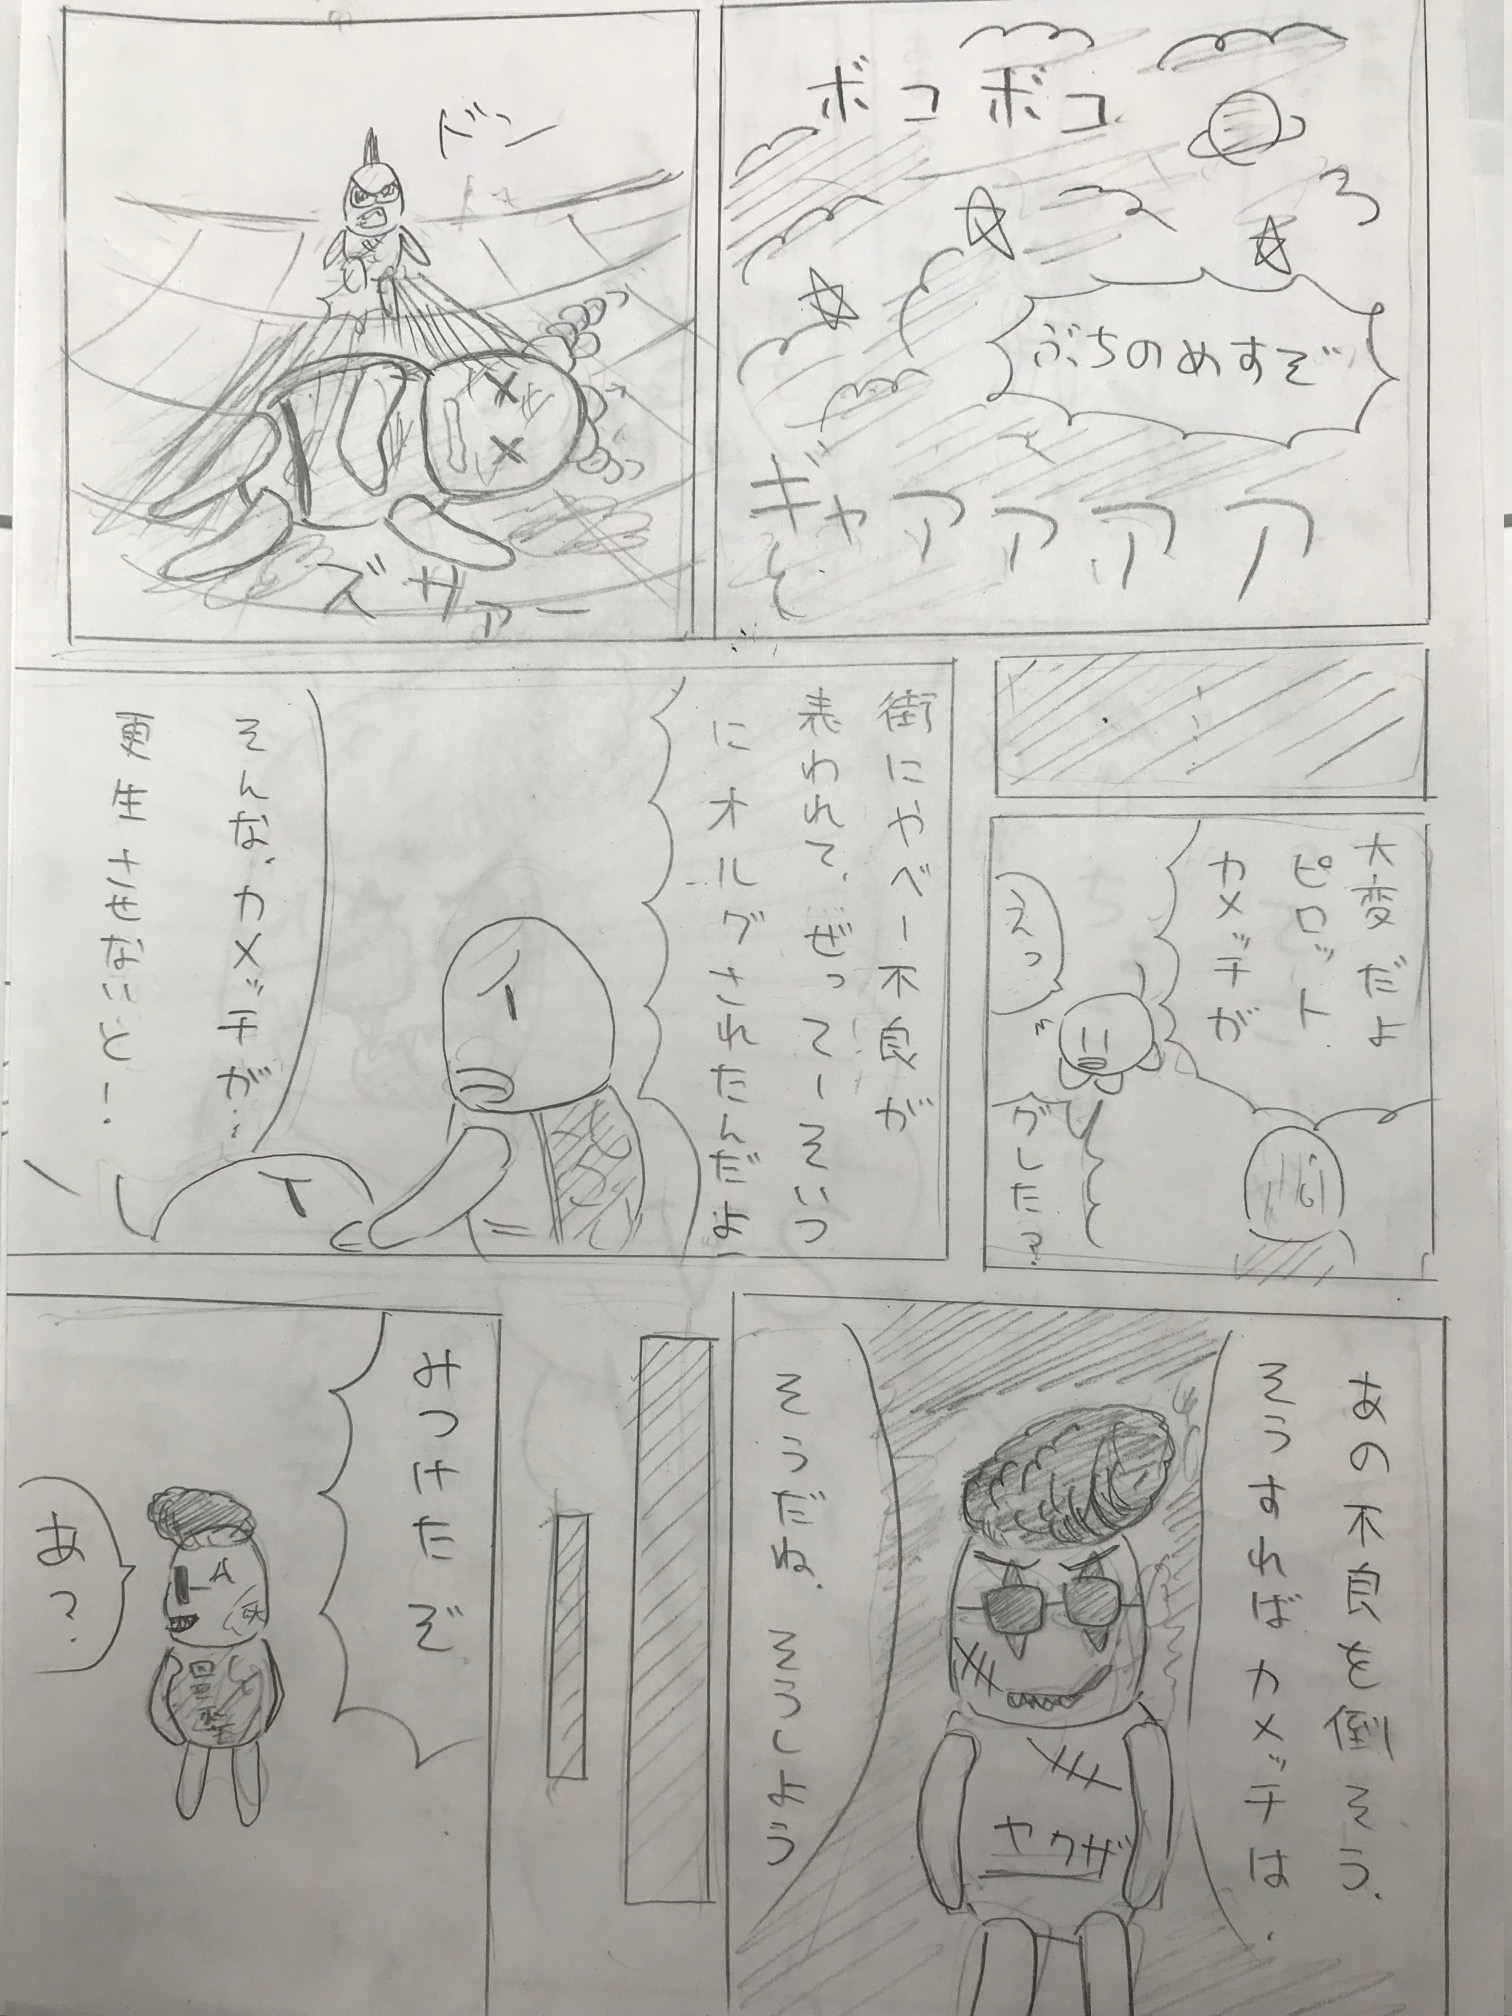 ボコボコ
ぶちのめすぞ
ギャアアアア
ドン
ズサァー
大変だよ
ピロット
カメッチが
えっ
グレた?
街にやべー不良が
表われて、ぜってーそいつ
にオルグされたんだよ
そんな、カメッチが…
更生させないと!
あの不良を倒そう、
そうすればカメッチは、
ヤクザ
そうだね、そうしよう
みつけたぞ
あ?